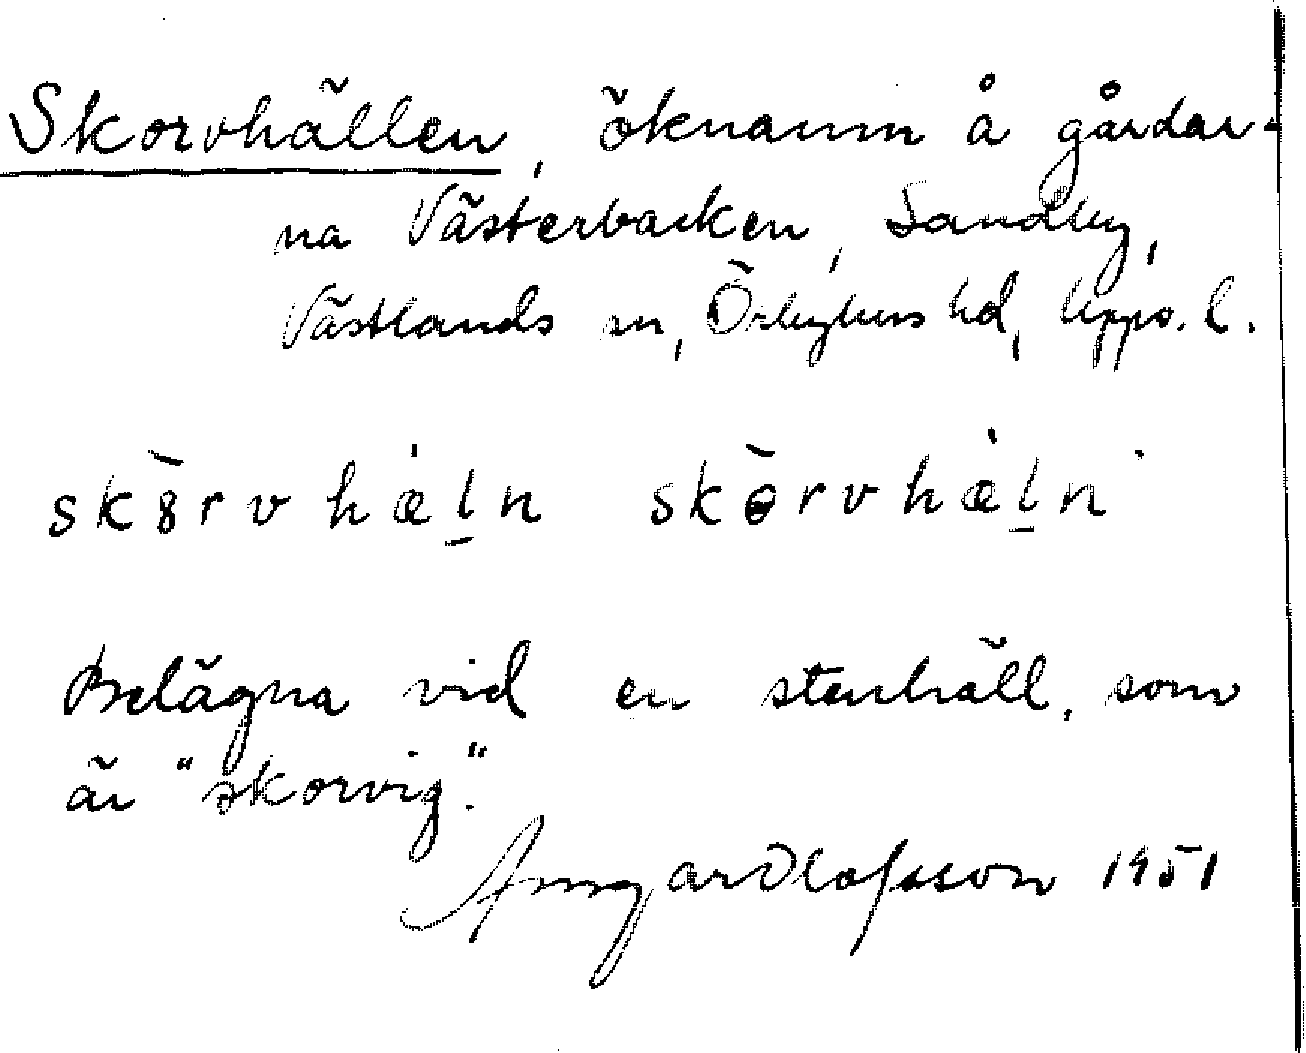 Skorvhällen, öknamn å gårdar-
na Västerbacken, Sandby,
Västlands sn, Örbyhus hd, Upps. l.
skȣ̀rvhæ̍l̠n skɵ̀rvhæ̍l̠n
Belägna vid en stenhäll, som
är "skorvig".
Olofsson 1951